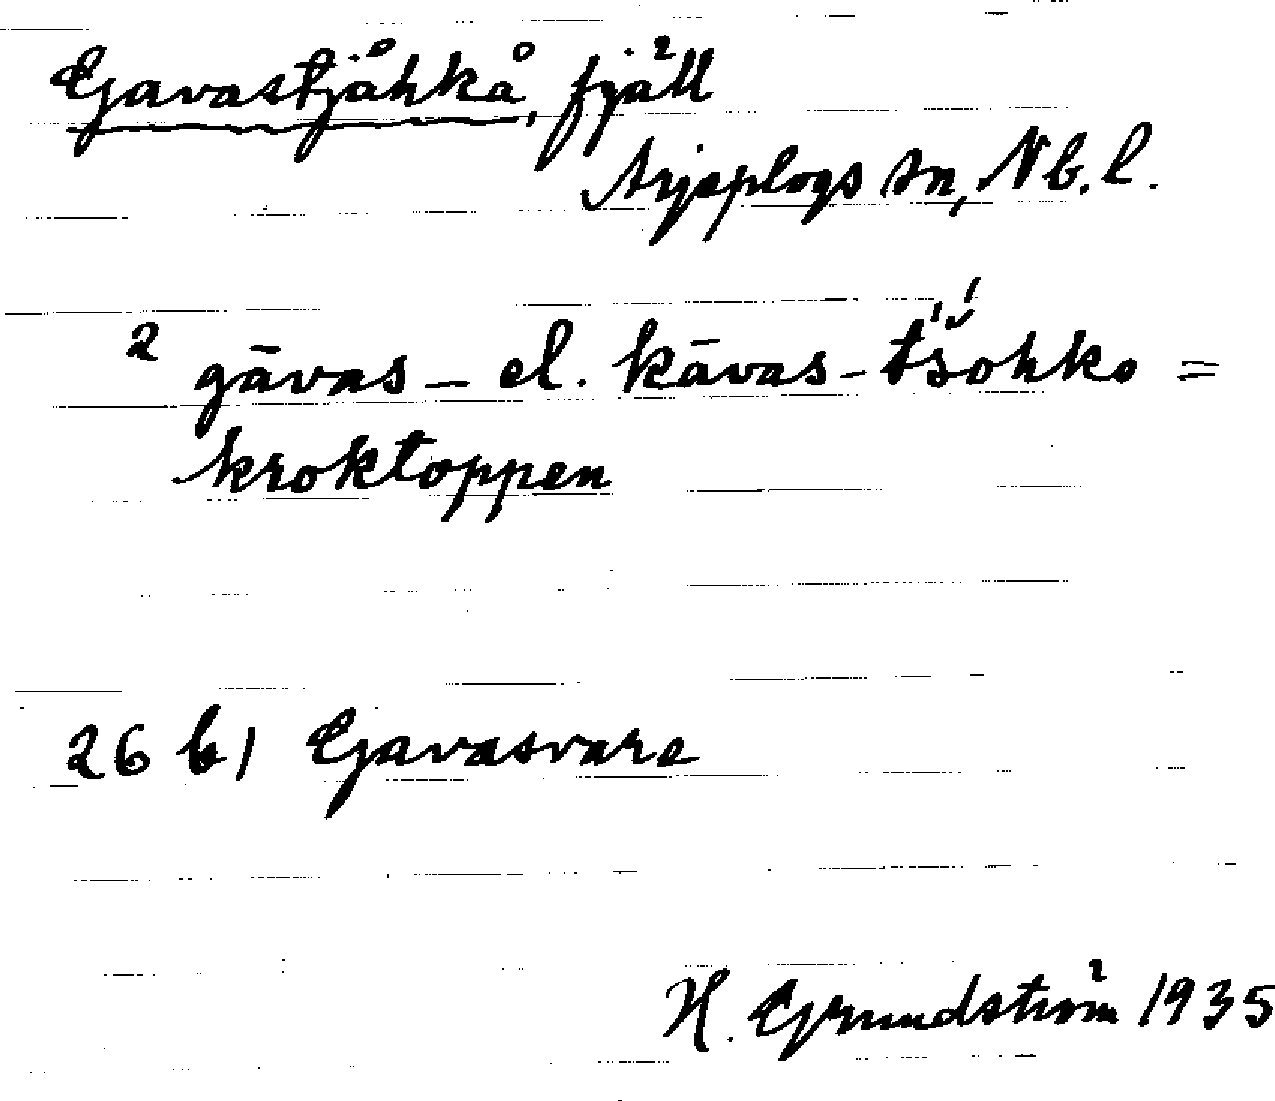 Gavastjåhkå, fjäll
Arjeplogs sn, Nb. l.
2 gāvas- el. kāvas-t́š́ohko =
kroktoppen
26 b) Gavasvare
H. Grundström 1935